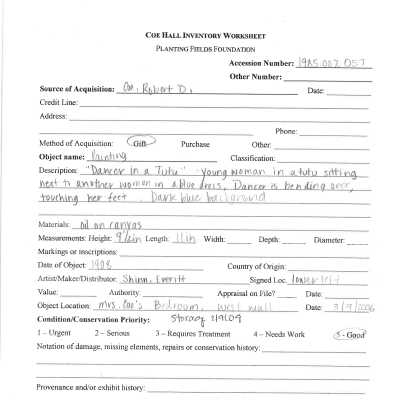 COE HALL INVENTORY WORKSHEET
PLANTING FIELDS FOUNDATION
Accession Number: 1985.002.057
Other Number:
Source of Acquisition: Coe, Robert D. Date:
Credit Line:
Address:
Phone:
Method of Acquisition: Gift Purchase Other:
Object name: Painting Classification:
Description: "Dancer In a Tutu" young woman in a tutu sitting
next to another woman in a blue dress. Dancer is bending over,
touching her feet. Dark blue background
Materials: oil on canvas
Measurements: Height: Length: 11in Width: Depth: Diameter:
Markings or Inscriptions:
Date of Object: 1908 Country of Origin:
Artist/Maker/Distributor: Shinn, Everitt Signed Loc. lower left
Value: Authority: Appraisal on File? Date:
Object Location: Mrs. Coe's Bedroom, West wall Date: 3/9/2006
Condition/Conservation Priority: Storage 3/9/09
1 – Urgent 2 – Serious 3 – Requires Treatment 4 – Needs Work 5 - Good
Notation of damage, missing elements, repairs or conservation history:
Provenance and/or exhibit history: